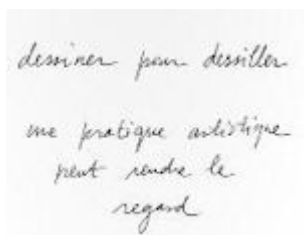 dessiner pour dessiller
une pratique artistique
peut rendre le
regard